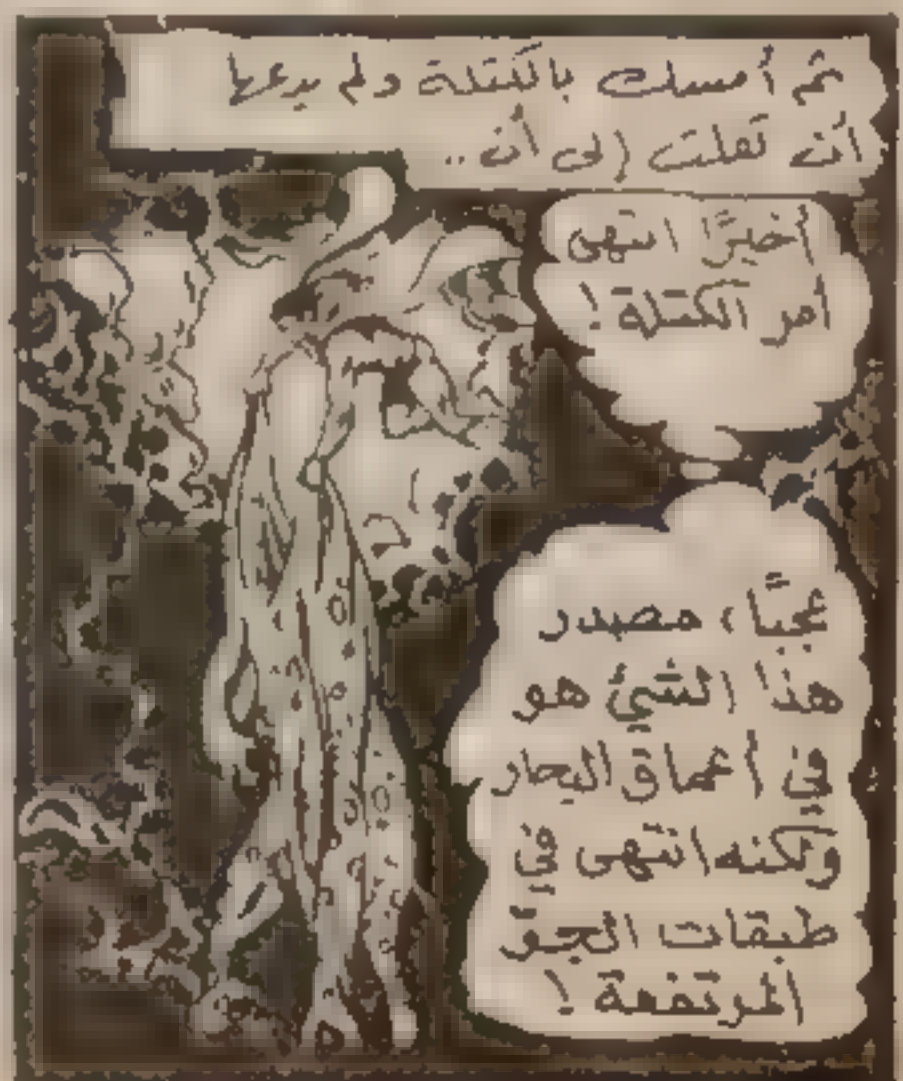 ثم أمسك بالكتلة ولم يدعها
أن تفلت إلى أن ..
أخيرًا انتهى
أمر الكتلة !
عجبًا، مصدر
هذا الشيئ هو
في أعماق البحار
ولكنه انتهى في
طبقات الجوّ
المرتفعة !